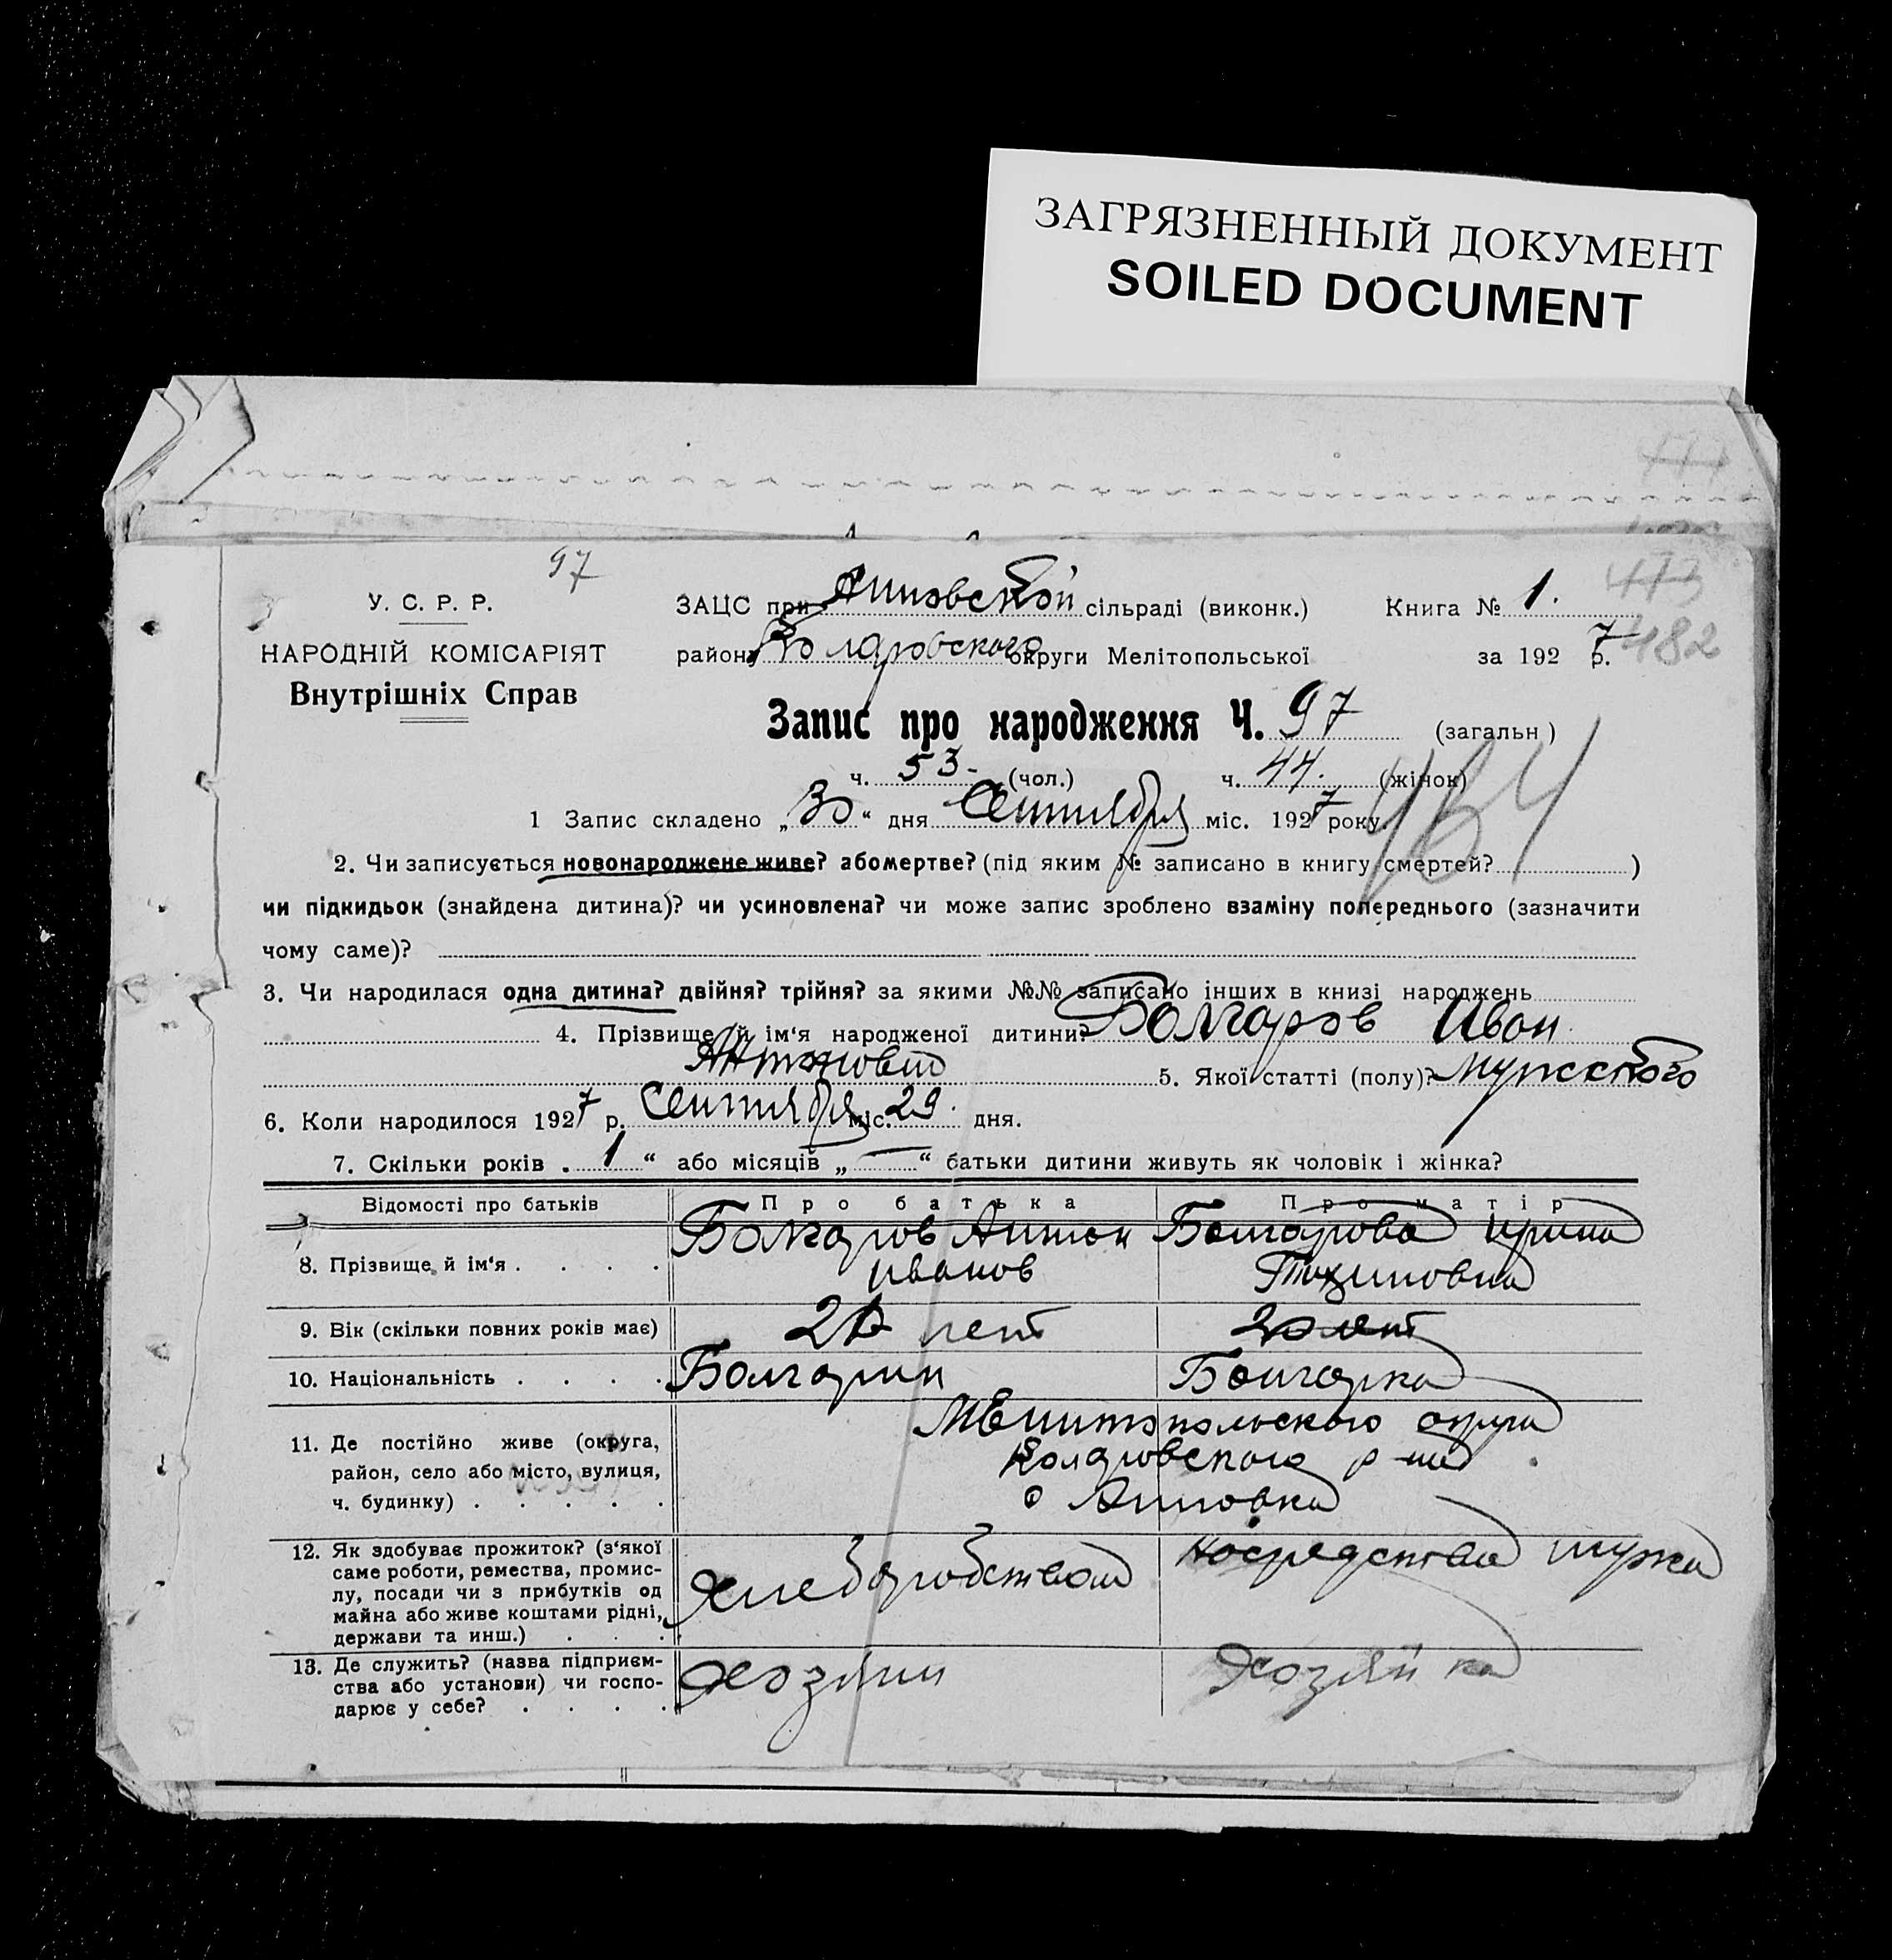 ЗАГРЯЗНЕННЫЙ ДОКУМЕНТ
SOILED DOCUMENT
97
У. С. Р. Р.
НАРОДНІЙ КОМІСАРІЯТ
Внутрішніх Справ
ЗАЦС при Анновской сільраді (виконк.) Книга № 1.
473
району Коларовского округи Мелітопольської за 1927 р.
482
Запис про народження Ч. 97 (загальн)
ч. 53. (чол.) ч. 44. (жінок)
1 Запис складено „30“ дня Сентября міс. 1927 року.
2. Чи записується новонароджене живе? або мертве? (під яким № записано в книгу смертей? )
чи підкидьок (знайдена дитина)? чи усиновлена? чи може запис зроблено взаміну попереднього (зазначити
чому саме)?
3. Чи народилася одна дитина? двійня? трійня? за якими №№ записано інших в книзі народжень
4. Прізвище й ім‘я народженої дитини? Болгаров Иван
Антонович 5. Якої статті (полу)? Мужского
6. Коли народилося 1927 р. Сентября міс. 29. дня.
7. Скільки років „1“ або місяців „—“ батьки дитини живуть як чоловік і жінка?
Відомості про батьків Про батька Про матір
8. Прізвище й ім‘я Болгаров Антон Иванов
Болгарова Ирина
9. Вік (скільки повних років має) 20 лет 20 лет
10. Національність Болгарин Болгарка
11. Де постійно живе (округа,
район, село або місто, вулиця,
ч. будинку)
Мелитопольского округа
Коларовского р-на
с Анновка
12. Як здобуває прожиток? (з‘якої
саме роботи, ремества, промис-
лу, посади чи з прибутків од
майна або живе коштами рідні,
держави та инш.)
Хлебаробством
на средства мужа
13. Де служить? (назва підприєм-
ства або установи) чи госпо-
дарює у себе?
Хозяин
Хозяйка